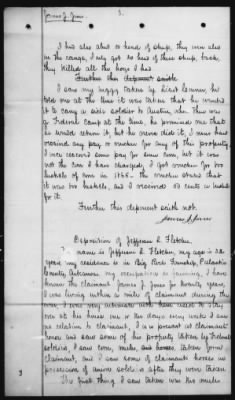 James J. Jones. 3.
I had also about 20 head of sheep, they were also
in the range, I only got 20 head of these sheep, back,
they killed all the hogs I had.
Further this deponent saith
I saw my buggy taken by Lieut
told me at the time it was taken that he wanted
it to carry a sick soldier to Austin, when this was
a Federal Camp at the time, he promised me that
he would return it, but he never did it, I never have
received any pay or voucher for any of this property.
I once received some pay for some corn, but it was
not the corn I have charged, I got voucher for 200
bushels of corn in 1865. The voucher states that
it was 200 bushels, and I received 50 cents a bushel
for it.
Further this deponent saith not.
James J. Jones
Deposition of Jefferson R. Fletcher.
My name is Jefferson R. Fletcher, my age is 22
years my residence is in Big Rock Township, Pulaski
County Arkansas, my occupation is farming, I have
known the claimant James J. Jones for twenty years,
I was living within a mile of claimant during the
war, I was very intimate with him used to stay
over at his house one or two days every week I am
no relation to claimant, I was present at claimants
house and saw some of his property taken by Federal
soldiers, I saw corn, mules, and horses taken from
claimant, and I saw some of claimants horses in
possession of union soldiers after they were taken.
The first thing I saw taken was his mules
3